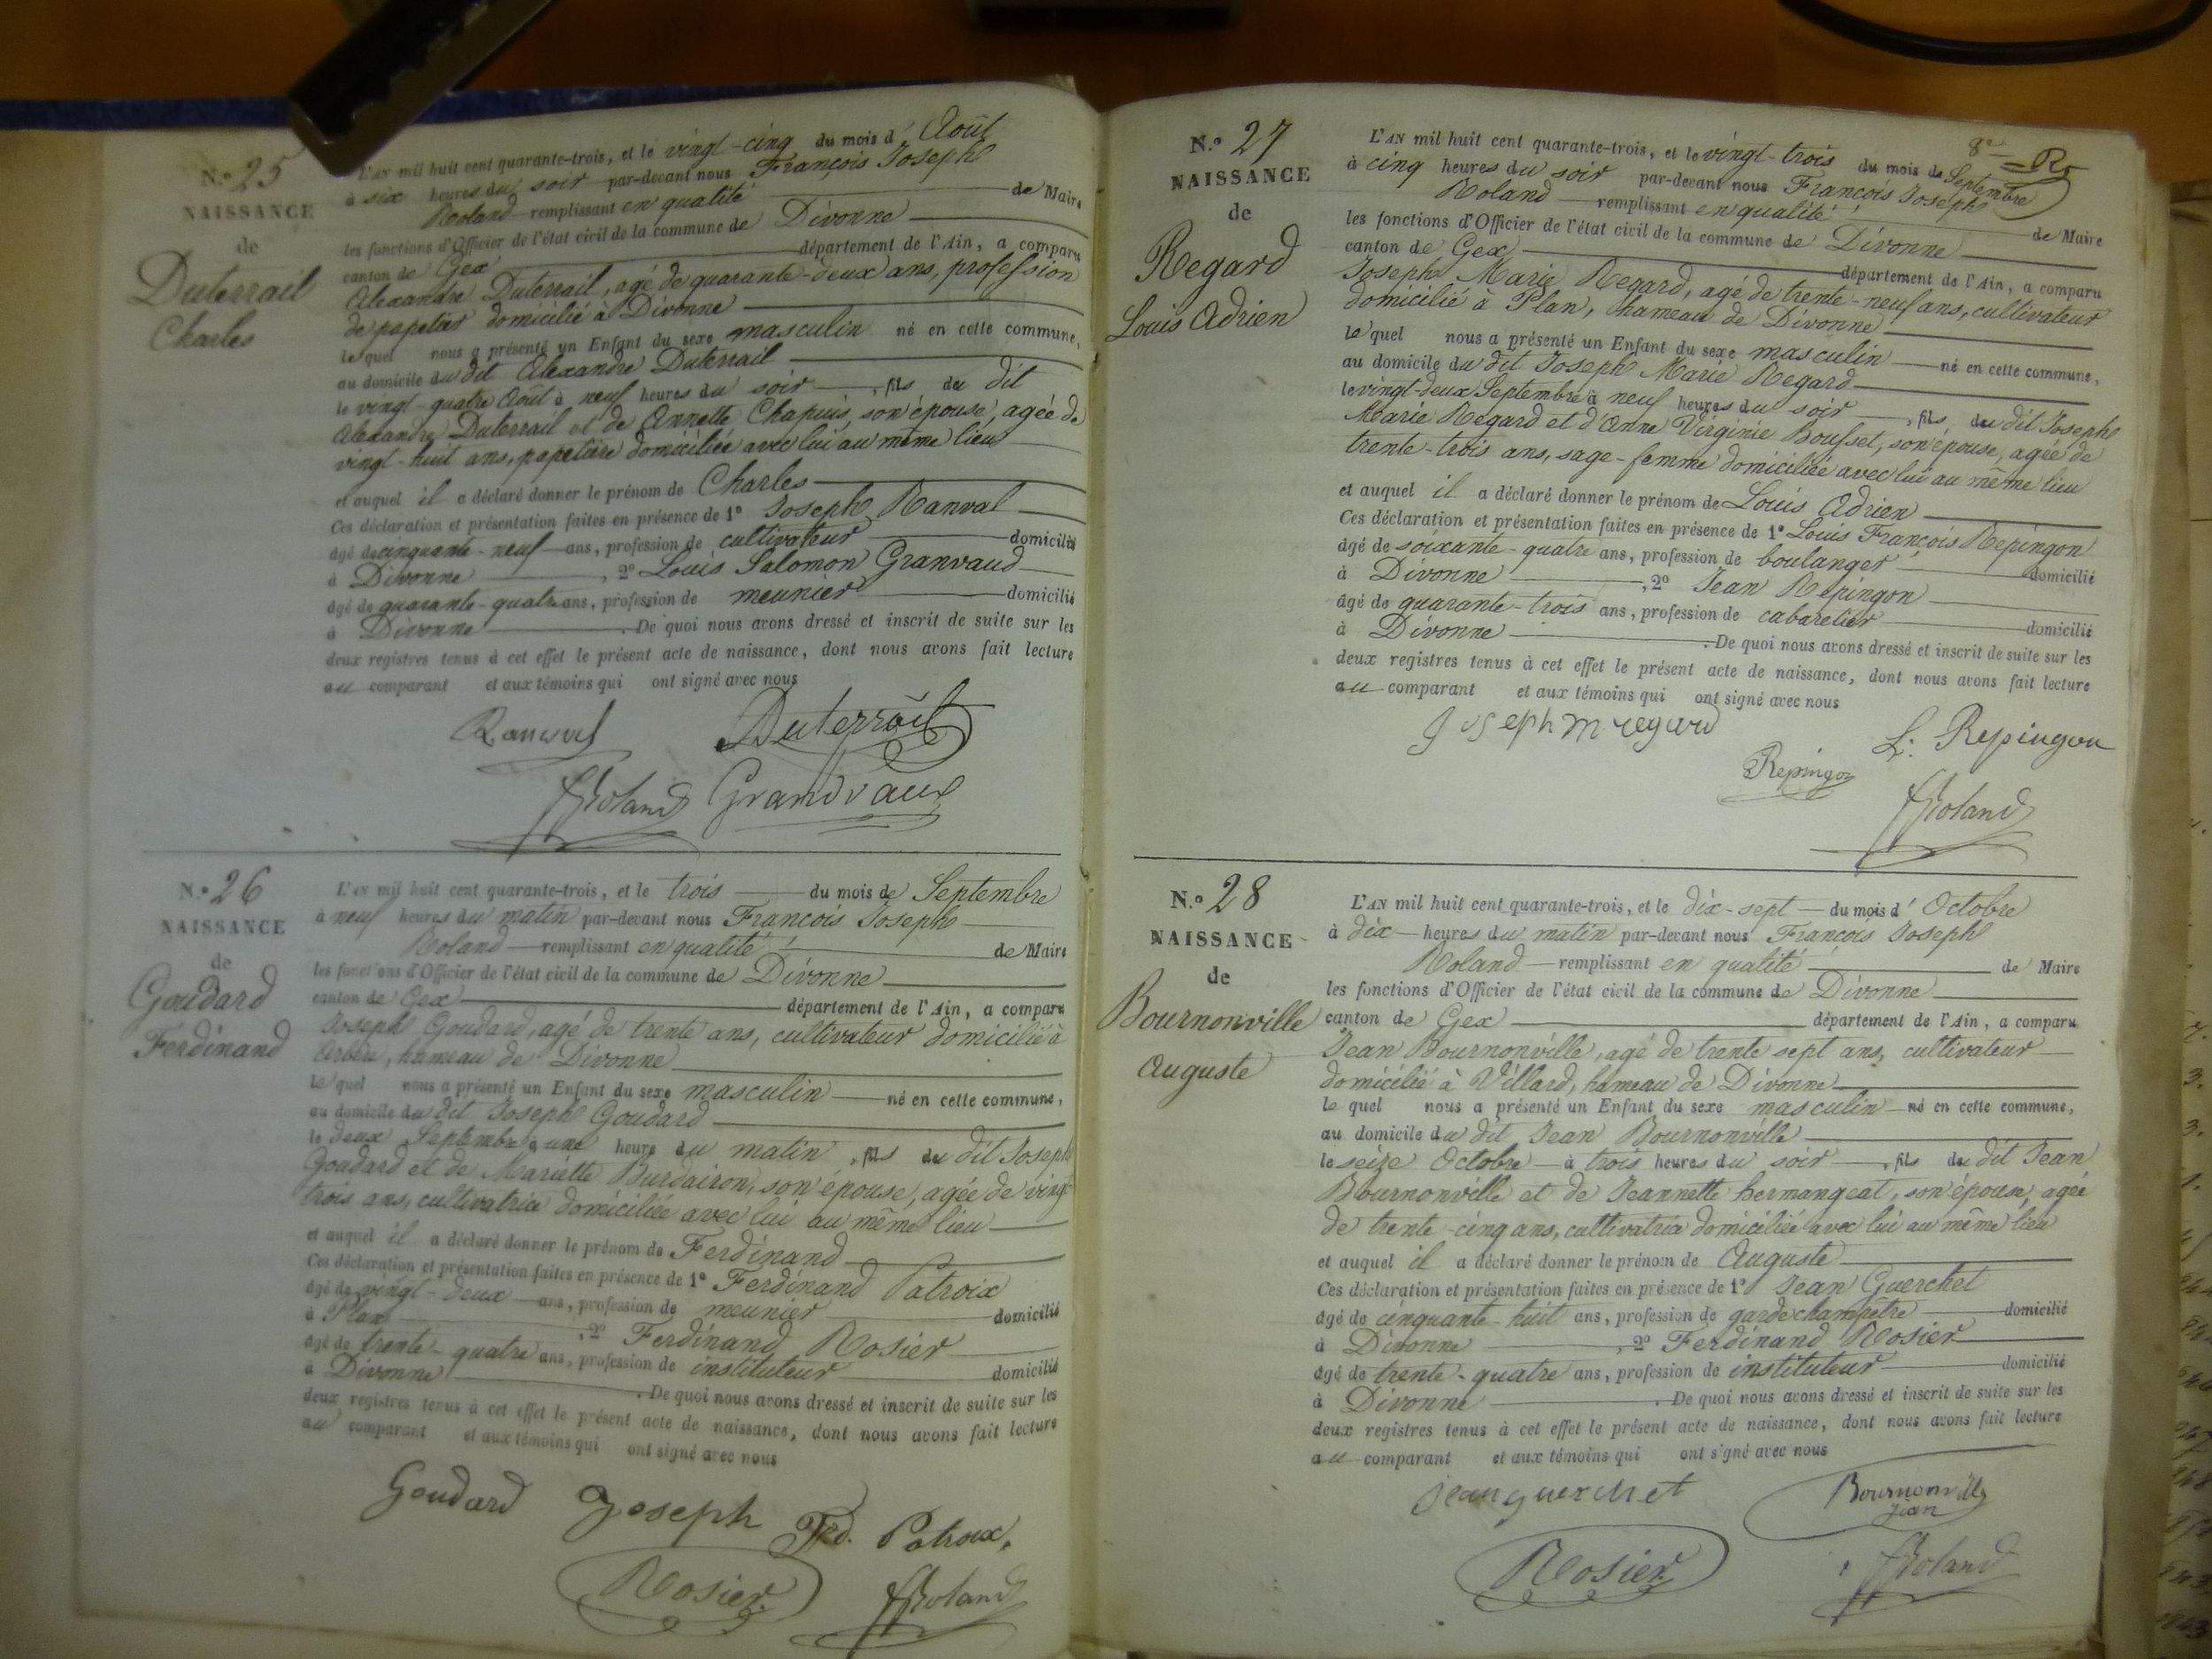 N.º 25
NAISSANCE
de
Duterrail
Charles
L'AN mil huit cent quarante-trois, et le vingt-cinq du mois d' Août
à six heures du soir par-devant nous François Joseph
Roland remplissant en qualité de Maire
les fonctions d'Officier de l'état civil de la commune de Divonne
canton de Gex département de l'Ain, a comparu
Alexandre Duterrail, agé de quarante-deux ans, profession
de papetier domicilié à Divonne
le quel nous a présenté un Enfant du sexe masculin né en cette commune,
au domicile du dit Alexandre Duterrail
le vingt-quatre Août à neuf heures du soir, fils du dit
Alexandre Duterrail et de Annette Chapuis, son épouse, agée de
vingt-huit ans, papetière domiciliée avec lui au même lieu
et auquel il a déclaré donner le prénom de Charles
Ces déclaration et présentation faites en présence de 1º Joseph Ranval
âgé de cinquante-neuf ans, profession de cultivateur domicilié
à Divonne, 2º Louis Salomon Granvaud
âgé de quarante-quatre ans, profession de meunier domicilié
à Divonne. De quoi nous avons dressé et inscrit de suite sur les
deux registres tenus à cet effet le présent acte de naissance, dont nous avons fait lecture
au comparant et aux témoins qui ont signé avec nous
Ranval Duterrail
fRoland Grandvaux
N.º 26
NAISSANCE
de
Goudard
Ferdinand
L'AN mil huit cent quarante-trois, et le trois du mois de Septembre
à neuf heures du matin par-devant nous François Joseph
Roland remplissant en qualité de Maire
les fonctions d'Officier de l'état civil de la commune de Divonne
canton de Gex département de l'Ain, a comparu
Joseph Goudard, agé de trente ans, cultivateur domicilié à
Arbère, hameau de Divonne
le quel nous a présenté un Enfant du sexe masculin né en cette commune,
au domicile du dit Joseph Goudard
le deux Septembre à une heure du matin, fils du dit Joseph
Goudard et de Mariette Burdairon, son épouse, agée de vingt
trois ans, cultivatrice domiciliée avec lui au même lieu
et auquel il a déclaré donner le prénom de Ferdinand
Ces déclaration et présentation faites en présence de 1º Ferdinand Patroix
âgé de vingt-deux ans, profession de meunier domicilié
à Plan, 2º Ferdinand Rosier
âgé de trente-quatre ans, profession de instituteur domicilié
à Divonne. De quoi nous avons dressé et inscrit de suite sur les
deux registres tenus à cet effet le présent acte de naissance, dont nous avons fait lecture
au comparant et aux témoins qui ont signé avec nous
Goudard Joseph Fd. Patroux.
Rosier fRoland
N.º 27
NAISSANCE
de
Regard
Louis Adrien
L'AN mil huit cent quarante-trois, et le vingt-trois du mois de Septembre
à cinq heures du soir par-devant nous François Joseph
Roland remplissant en qualité de Maire
les fonctions d'Officier de l'état civil de la commune de Divonne
canton de Gex département de l'Ain, a comparu
Joseph Marie Regard, agé de trente-neuf ans, cultivateur
domicilié à Plan, hameau de Divonne
le quel nous a présenté un Enfant du sexe masculin né en cette commune,
au domicile du dit Joseph Marie Regard
le vingt-deux Septembre à neuf heures du soir, fils du dit Joseph
Marie Regard et d'Anne Virginie Bousset, son épouse, agée de
trente-trois ans, sage-femme domiciliée avec lui au même lieu
et auquel il a déclaré donner le prénom de Louis Adrien
Ces déclaration et présentation faites en présence de 1º Louis François Repingon
âgé de soixante-quatre ans, profession de boulanger domicilié
à Divonne, 2º Jean Repingon
âgé de quarante-trois ans, profession de cabaretier domicilié
à Divonne. De quoi nous avons dressé et inscrit de suite sur les
deux registres tenus à cet effet le présent acte de naissance, dont nous avons fait lecture
au comparant et aux témoins qui ont signé avec nous
Joseph m regard
L. Repingon
Repingon
fRoland
N.º 28
NAISSANCE
de
Bournonville
Auguste
L'AN mil huit cent quarante-trois, et le dix-sept du mois d' Octobre
à dix heures du matin par-devant nous François Joseph
Roland remplissant en qualité de Maire
les fonctions d'Officier de l'état civil de la commune de Divonne
canton de Gex département de l'Ain, a comparu
Jean Bournonville, agé de trente sept ans, cultivateur
domicilié à Villard, hameau de Divonne
le quel nous a présenté un Enfant du sexe masculin né en cette commune,
au domicile du dit Jean Bournonville
le seize Octobre à trois heures du soir, fils du dit Jean
Bournonville et de Jeannette hermangeat, son épouse, agée
de trente-cinq ans, cultivatrice domiciliée avec lui au même lieu
et auquel il a déclaré donner le prénom de Auguste
Ces déclaration et présentation faites en présence de 1º Jean Guerchet
âgé de cinquante-huit ans, profession de garde champêtre domicilié
à Divonne, 2º Ferdinand Rosier
âgé de trente-quatre ans, profession de instituteur domicilié
à Divonne. De quoi nous avons dressé et inscrit de suite sur les
deux registres tenus à cet effet le présent acte de naissance, dont nous avons fait lecture
au comparant et aux témoins qui ont signé avec nous
jean guerchet Bournonville
Jean
Rosier fRoland